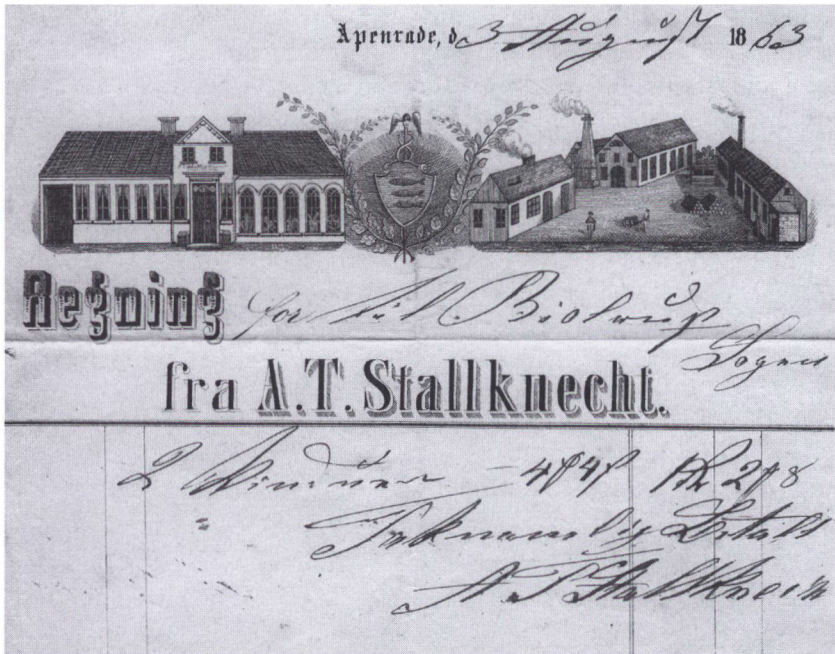 Apenrade, d. 3 August 1863
Regning for til Biolrup
Sogen
fra A.T. Stallknecht.
2 Vinduer
Taknemlig Betalt
A. T. Stallknecht